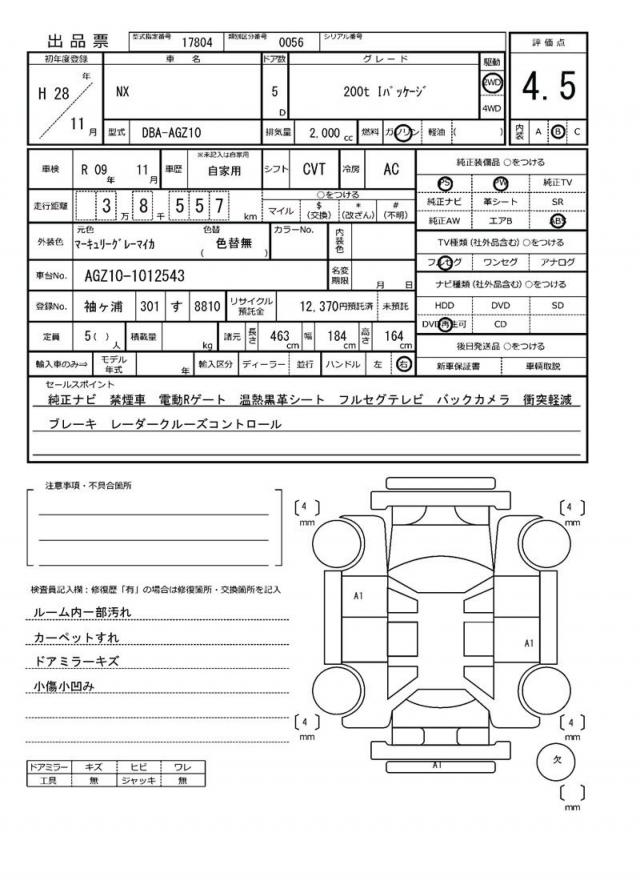 出品票 型式指定番号 17804 類別区分番号 0056 シリアル番号
初年度登録 車名 ドア数 グレード 駆動 評価点
H 28 年 11 月 NX 5 D 200t Iパッケージ 2WD 4WD 4.5
型式 DBA-AGZ10 排気量 2,000 cc 燃料 ガソリン 軽油 ( ) 内装 A B C
車検 R 09 年 11 月 車歴 ※未記入は自家用 自家用 シフト CVT 冷房 AC
走行距離 3 万 8 千 5 5 7 km ○をつける マイル $ (交換) * (改ざん) # (不明)
外装色 元色 マーキュリーグレーマイカ 色替 ( 色替無 ) カラーNo. 内装色
車台No. AGZ10-1012543 名変期限 月 日
登録No. 袖ヶ浦 301 す 8810 リサイクル預託金 12,370円預託済 未預託
定員 5( ) 人 積載量 kg 諸元 長さ 463 cm 幅 184 cm 高さ 164 cm
輸入車のみ⇒ モデル年式 年 輸入区分 ディーラー 並行 ハンドル 左 右
純正装備品 ○をつける
PS PW 純正TV
純正ナビ 革シート SR
純正AW エアB ABS
TV種類 (社外品含む) ○をつける
フルセグ ワンセグ アナログ
ナビ種類 (社外品含む) ○をつける
HDD DVD SD
DVD再生可 CD
後日発送品 ○をつける
新車保証書 車輌取説
セールスポイント
純正ナビ 禁煙車 電動Rゲート 温熱黒革シート フルセグテレビ バックカメラ 衝突軽減
ブレーキ レーダークルーズコントロール
注意事項・不具合箇所
検査員記入欄：修復歴「有」の場合は修復箇所・交換箇所を記入
ルーム内一部汚れ
カーペットすれ
ドアミラーキズ
小傷小凹み
ドアミラー キズ ヒビ ワレ
工具 無 ジャッキ 無
[ 4 ] mm
[ 4 ] mm
A1
A1
[ 4 ] mm
[ 4 ] mm
A1
欠
[ ] mm